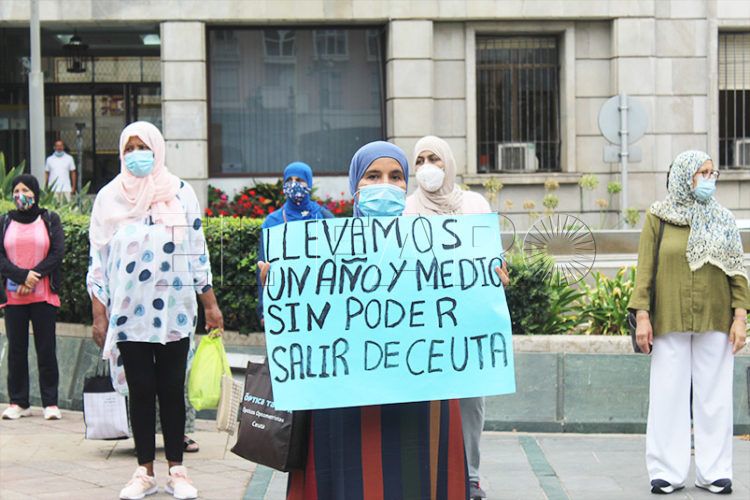 LLEVAMOS
UN AÑO Y MEDIO
SIN PODER
SALIR DE CEUTA
Ceuta